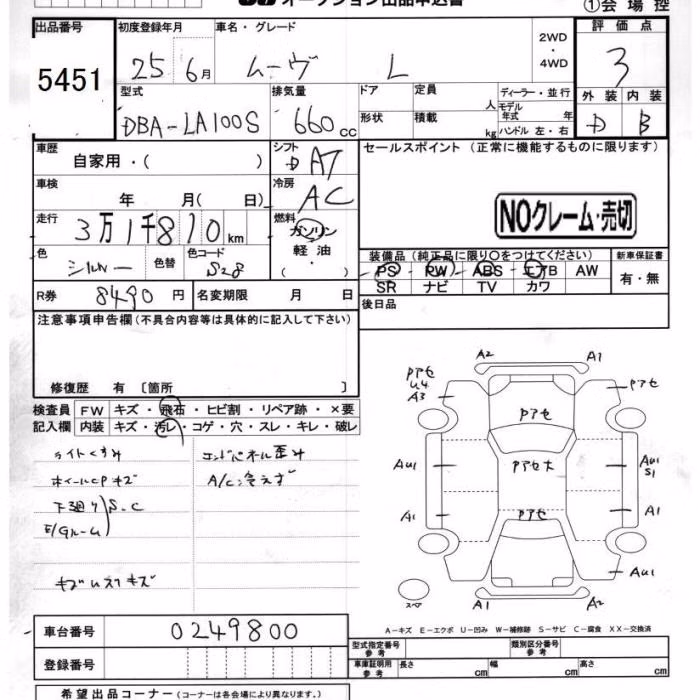 オークション出品申込書
①会場控
出品番号
5451
初度登録年月
25 6月
車名・グレード
ムーヴ L
2WD
・
4WD
評価点
3
外装 内装
D B
型式
DBA-LA100S
排気量
660 cc
ドア
定員
人
ディーラー・並行
モデル
年式 年
形状
積載
kg
ハンドル 左・右
車歴
自家用・( )
シフト
D AT
車検
年 月( 日)
冷房
AC
走行
3万1千810km
燃料
ガソリン
軽油
・
( )
色
シルバー
色替
色コード
S28
R券
8490円
名変期限 月 日
セールスポイント (正常に機能するものに限ります)
NOクレーム・売切
装備品 (純正品に限り○をつけてください)
PS PW ABS エアB AW
SR ナビ TV カワ
新車保証書
有・無
後日品
注意事項申告欄 (不具合内容等は具体的に記入して下さい)
修復歴 有 〔箇所 〕
検査員
記入欄
FW キズ・飛石・ヒビ割・リペア跡・×要
内装 キズ・汚レ・コゲ・穴・スレ・キレ・破レ
ライトくすみ
ホイールCPキズ
下廻り
E/Gルーム
S.C
エンドパネル歪み
A/C冷えず
A2 A1
Pアセ
U4
A3
Pアセ
Pアセ
AU1
Pアセ大
AU1
S1
A1
Pアセ
A1
AU1
スペア
A1 A2
A-キズ E-エクボ U-凹み W-補修跡 S-サビ C-腐食 XX-交換済
車台番号
0249800
登録番号
型式指定番号
参考
類別区分番号
参考
車庫証明用
参考
長さ cm
幅 cm
高さ cm
希望出品コーナー (コーナーは各会場により異なります。)